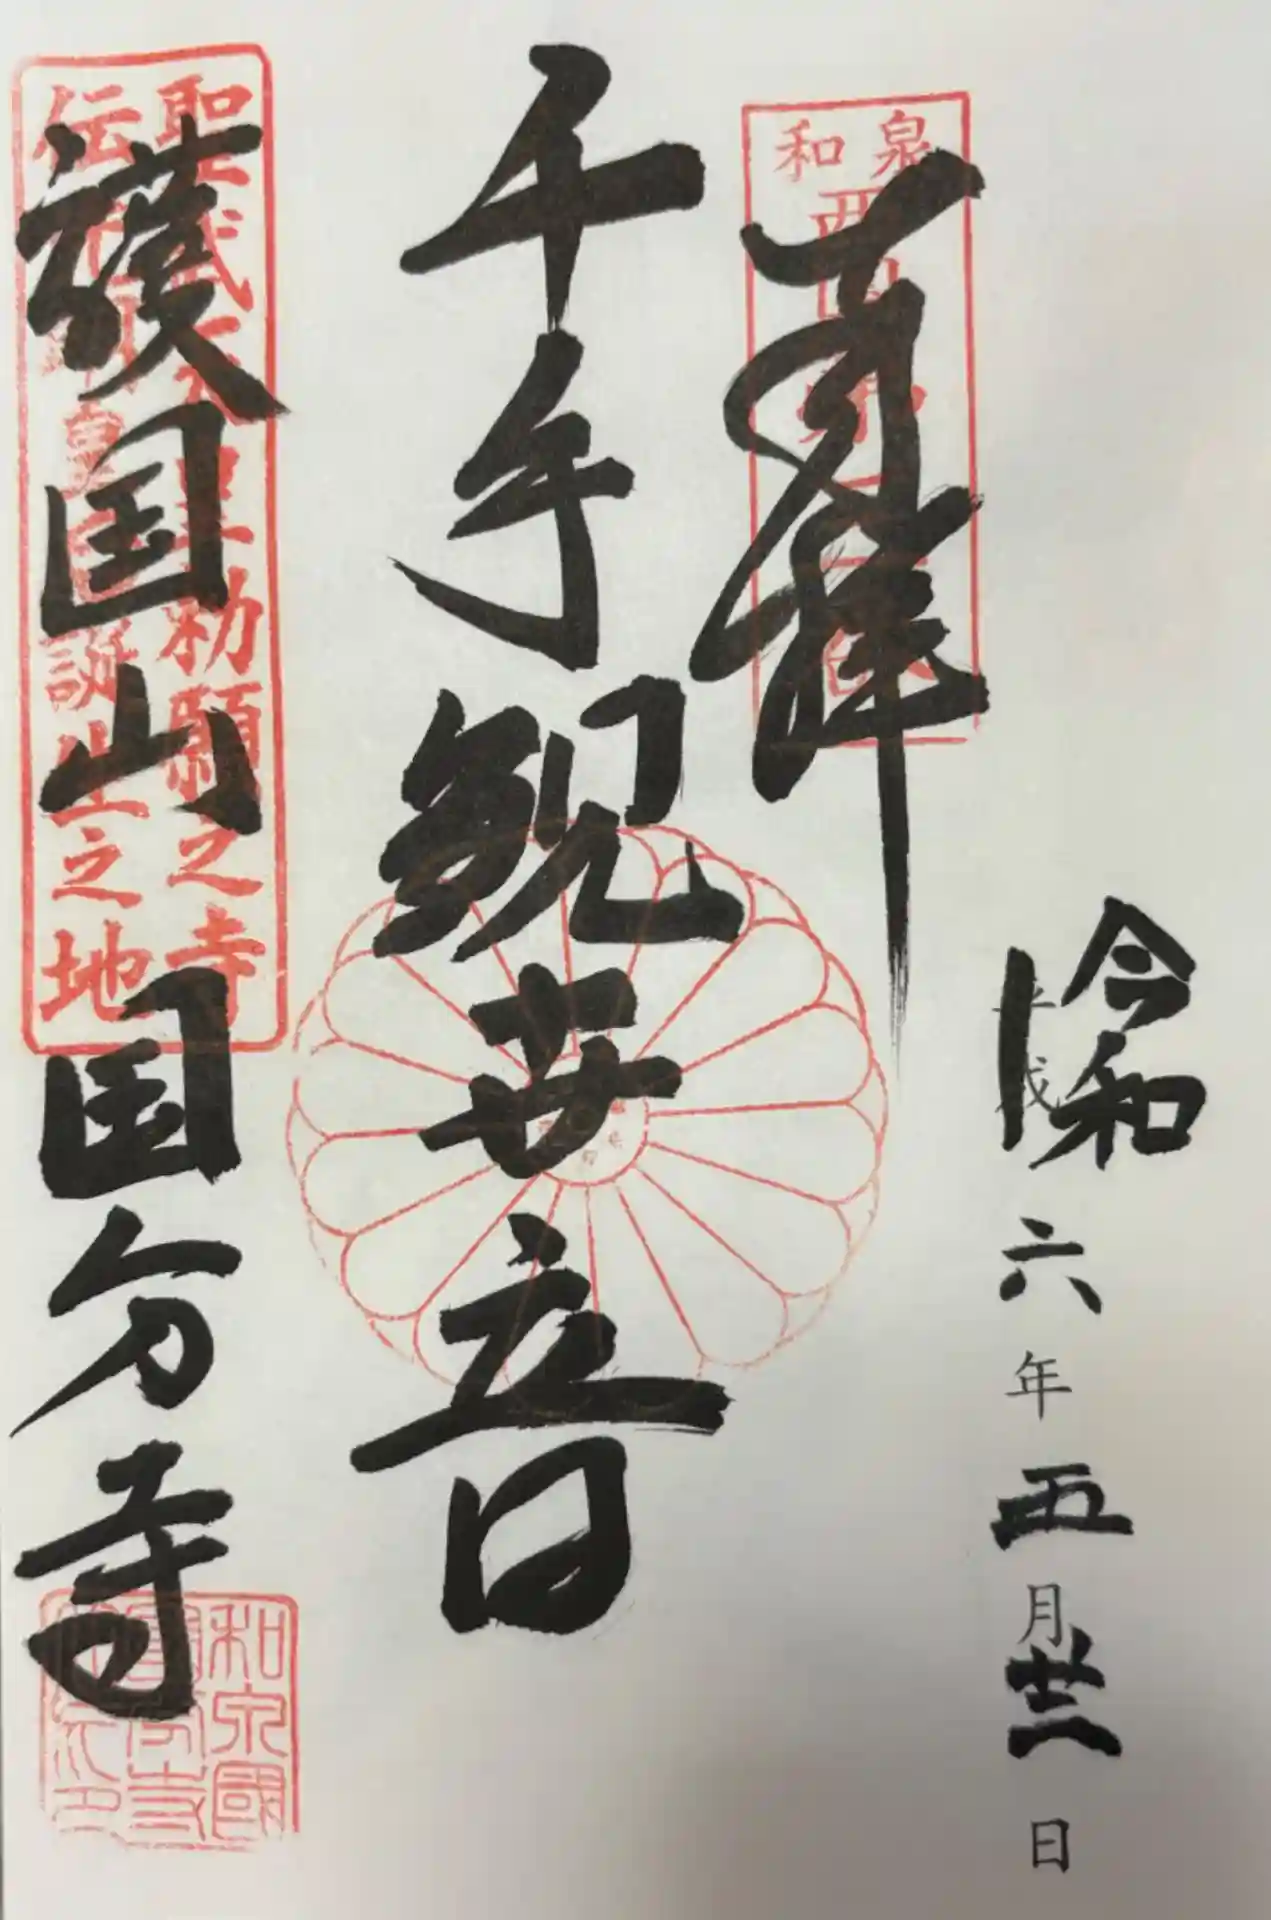 令和六年五月 日
平成
奉拝
和泉
西国
千手観世音
護国山国分寺
聖武天皇勅願之寺
伝 誕生之地
和泉國
國分寺